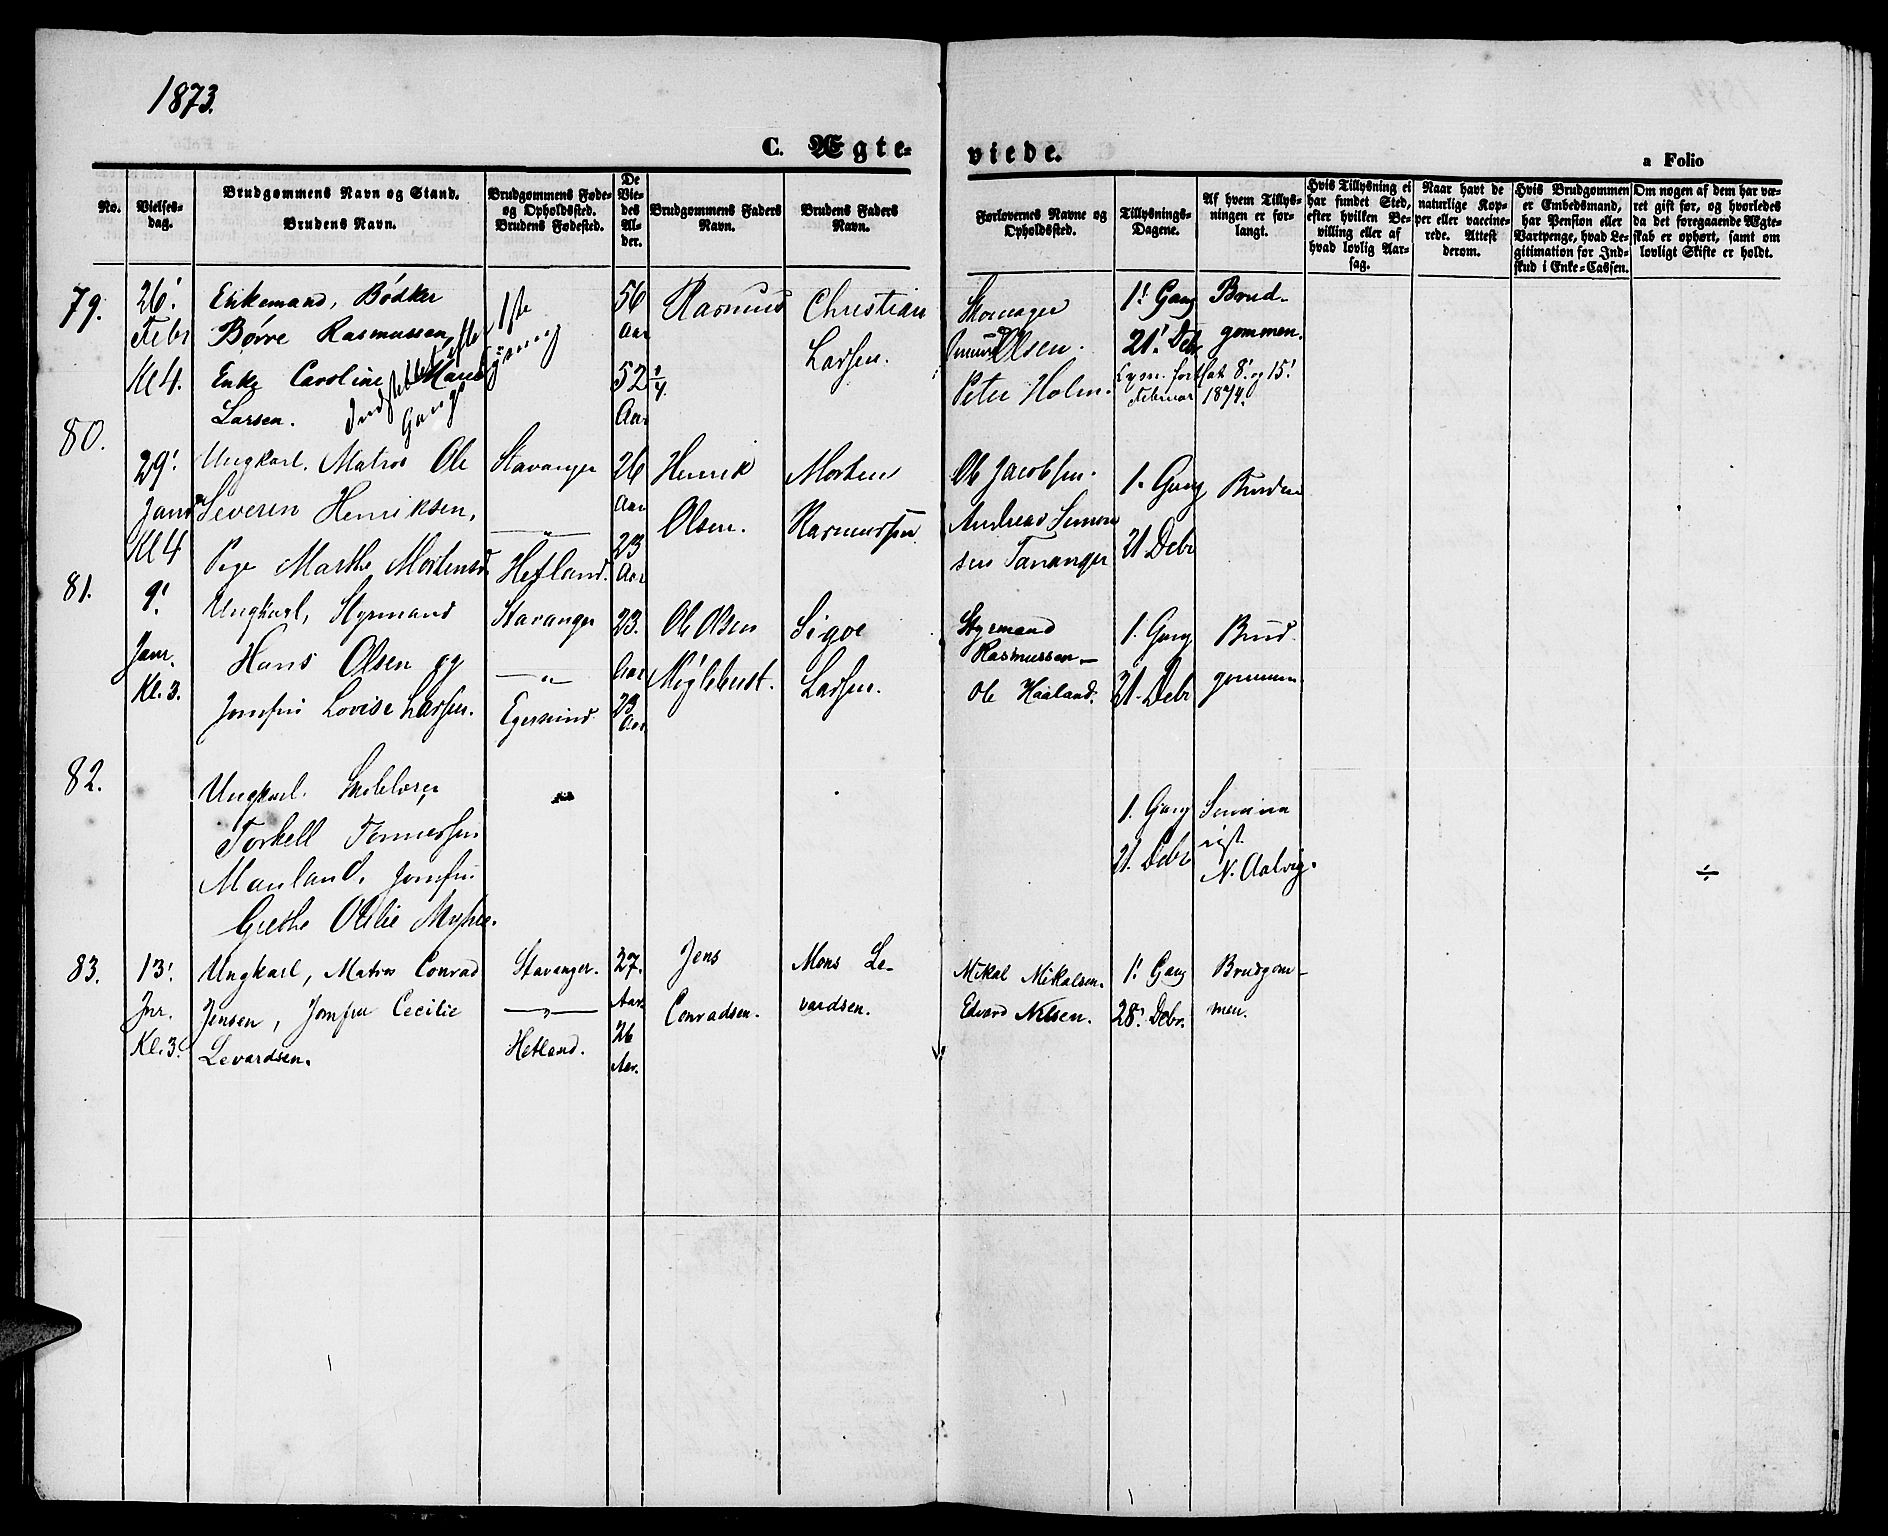 1873.
C. Ægte-
viede.
a Folio
No.
Vielses-
dag.
Brudgommens Navn og Stand.
Brudens Navn.
Brudgommens Føde-
og Opholdssted.
Brudens Fødested.
De
Vie-
des
Al-
der.
Brudgommens Faders
Navn.
Brudens Faders
Navn.
Forlovernes Navne og
Opholdssted.
Tillysnings-
Dagene.
Af hvem Tillys-
ningen er for-
langt.
Hvis Tillysning ei
har fundet Sted,
efter hvilken Be-
villing eller af
hvad lovlig Aar-
sag.
Naar havt de
naturlige Kop-
per eller vaccine-
rede. Attest
derom.
Hvis Brudgommen
er Embedsmand,
har Pension eller
Vartpenge, hvad Le-
gitimation for Ind-
skud i Enke-Cassen.
Om nogen af dem har væ-
ret gift før, og hvorledes
da det foregaaende Ægte-
skab er ophørt, samt om
lovligt Skifte er holdt.
79.
26!
Febr
Kl 4.
Enkemand, Bødker
Børre Rasmussen,
Enke Caroline Marie
Larsen.
Indstillet efter 1ste
Gangs Lysning
56
Aar
52
Aar
Rasmus
Christian
Larsen.
Skomager
Olsen.
Peter Holm.
1! Gang
21! Debr
Lysn. fortsat 8! og 15!
Februar 1874.
Brud-
gommen.
80.
29!
Janr
Kl 4
Ungkarl. Matros Ole
Severin Henriksen,
Pige Marthe Mortensd.
Stavanger
— " —
Hetland.
26
Aar
23
Aar
Henrik
Olsen.
Morten
Rasmussen
Ole Jacobsen.
Andreas Simon
sen Tananger
1. Gang
21 Debr
Bruden
81.
9!
Janr.
Kl. 3.
Ungkarl, Styrmand
Hans Olsen og
Jomfru Lovise Larsen.
Stavanger
— " —
Egersund.
23.
Aar
23
Aar
Ole Olsen
Møglebust.
Sigve
Larsen.
Styrmand
Rasmussen —
Ole Haaland.
1. Gang
21. Debr
Brud
gommen
82.
Ungkarl. Skolelærer
Torkell Tønnessen
Manland. Jomfru
Grethe Otilie Myhre.
1. Gang
21. Debr
Semina
rist.
N. Aalvig.
÷
83.
13!
Jnr.
Kl. 3.
Ungkarl, Matros Conrad
Jensen, Jomfru Cecilie
Levardsen.
Stavanger.
— " —
Hetland.
27.
Aar.
26
Aar.
Jens
Conradsen.
Mons Le-
vardsen.
Mikal Mikalsen.
Edvard Nilsen.
1! Gang
28! Debr.
Brudgom-
men.